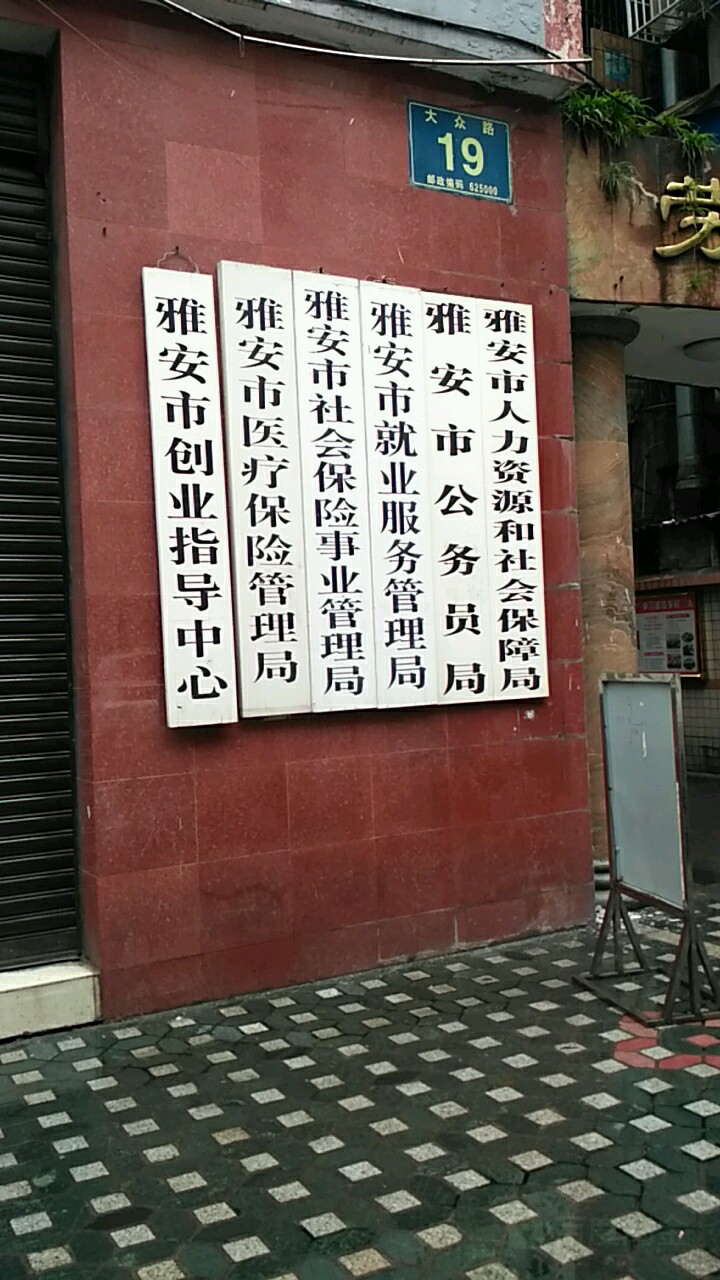 大众路
19
邮政编码 625000
雅安市创业指导中心
雅安市医疗保险管理局
雅安市社会保险事业管理局
雅安市就业服务管理局
雅安市公务员局
雅安市人力资源和社会保障局
劳